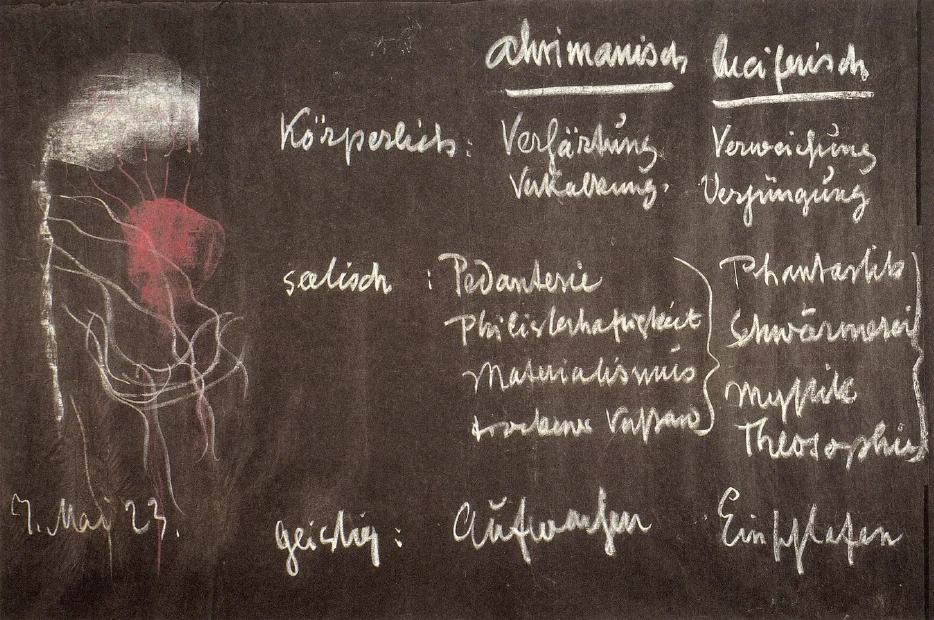 ahrimanisch luciferisch
Körperlich: Verhärtung Verweichung
Verkalkung. Verjüngung
seelisch : Pedanterie Phantastik
Philisterhaftigkeit Schwärmerei
Materialismus Mystik
trockener Verstand Theosophie
7. Mai 23.
geistig: Aufwachen Einschlafen